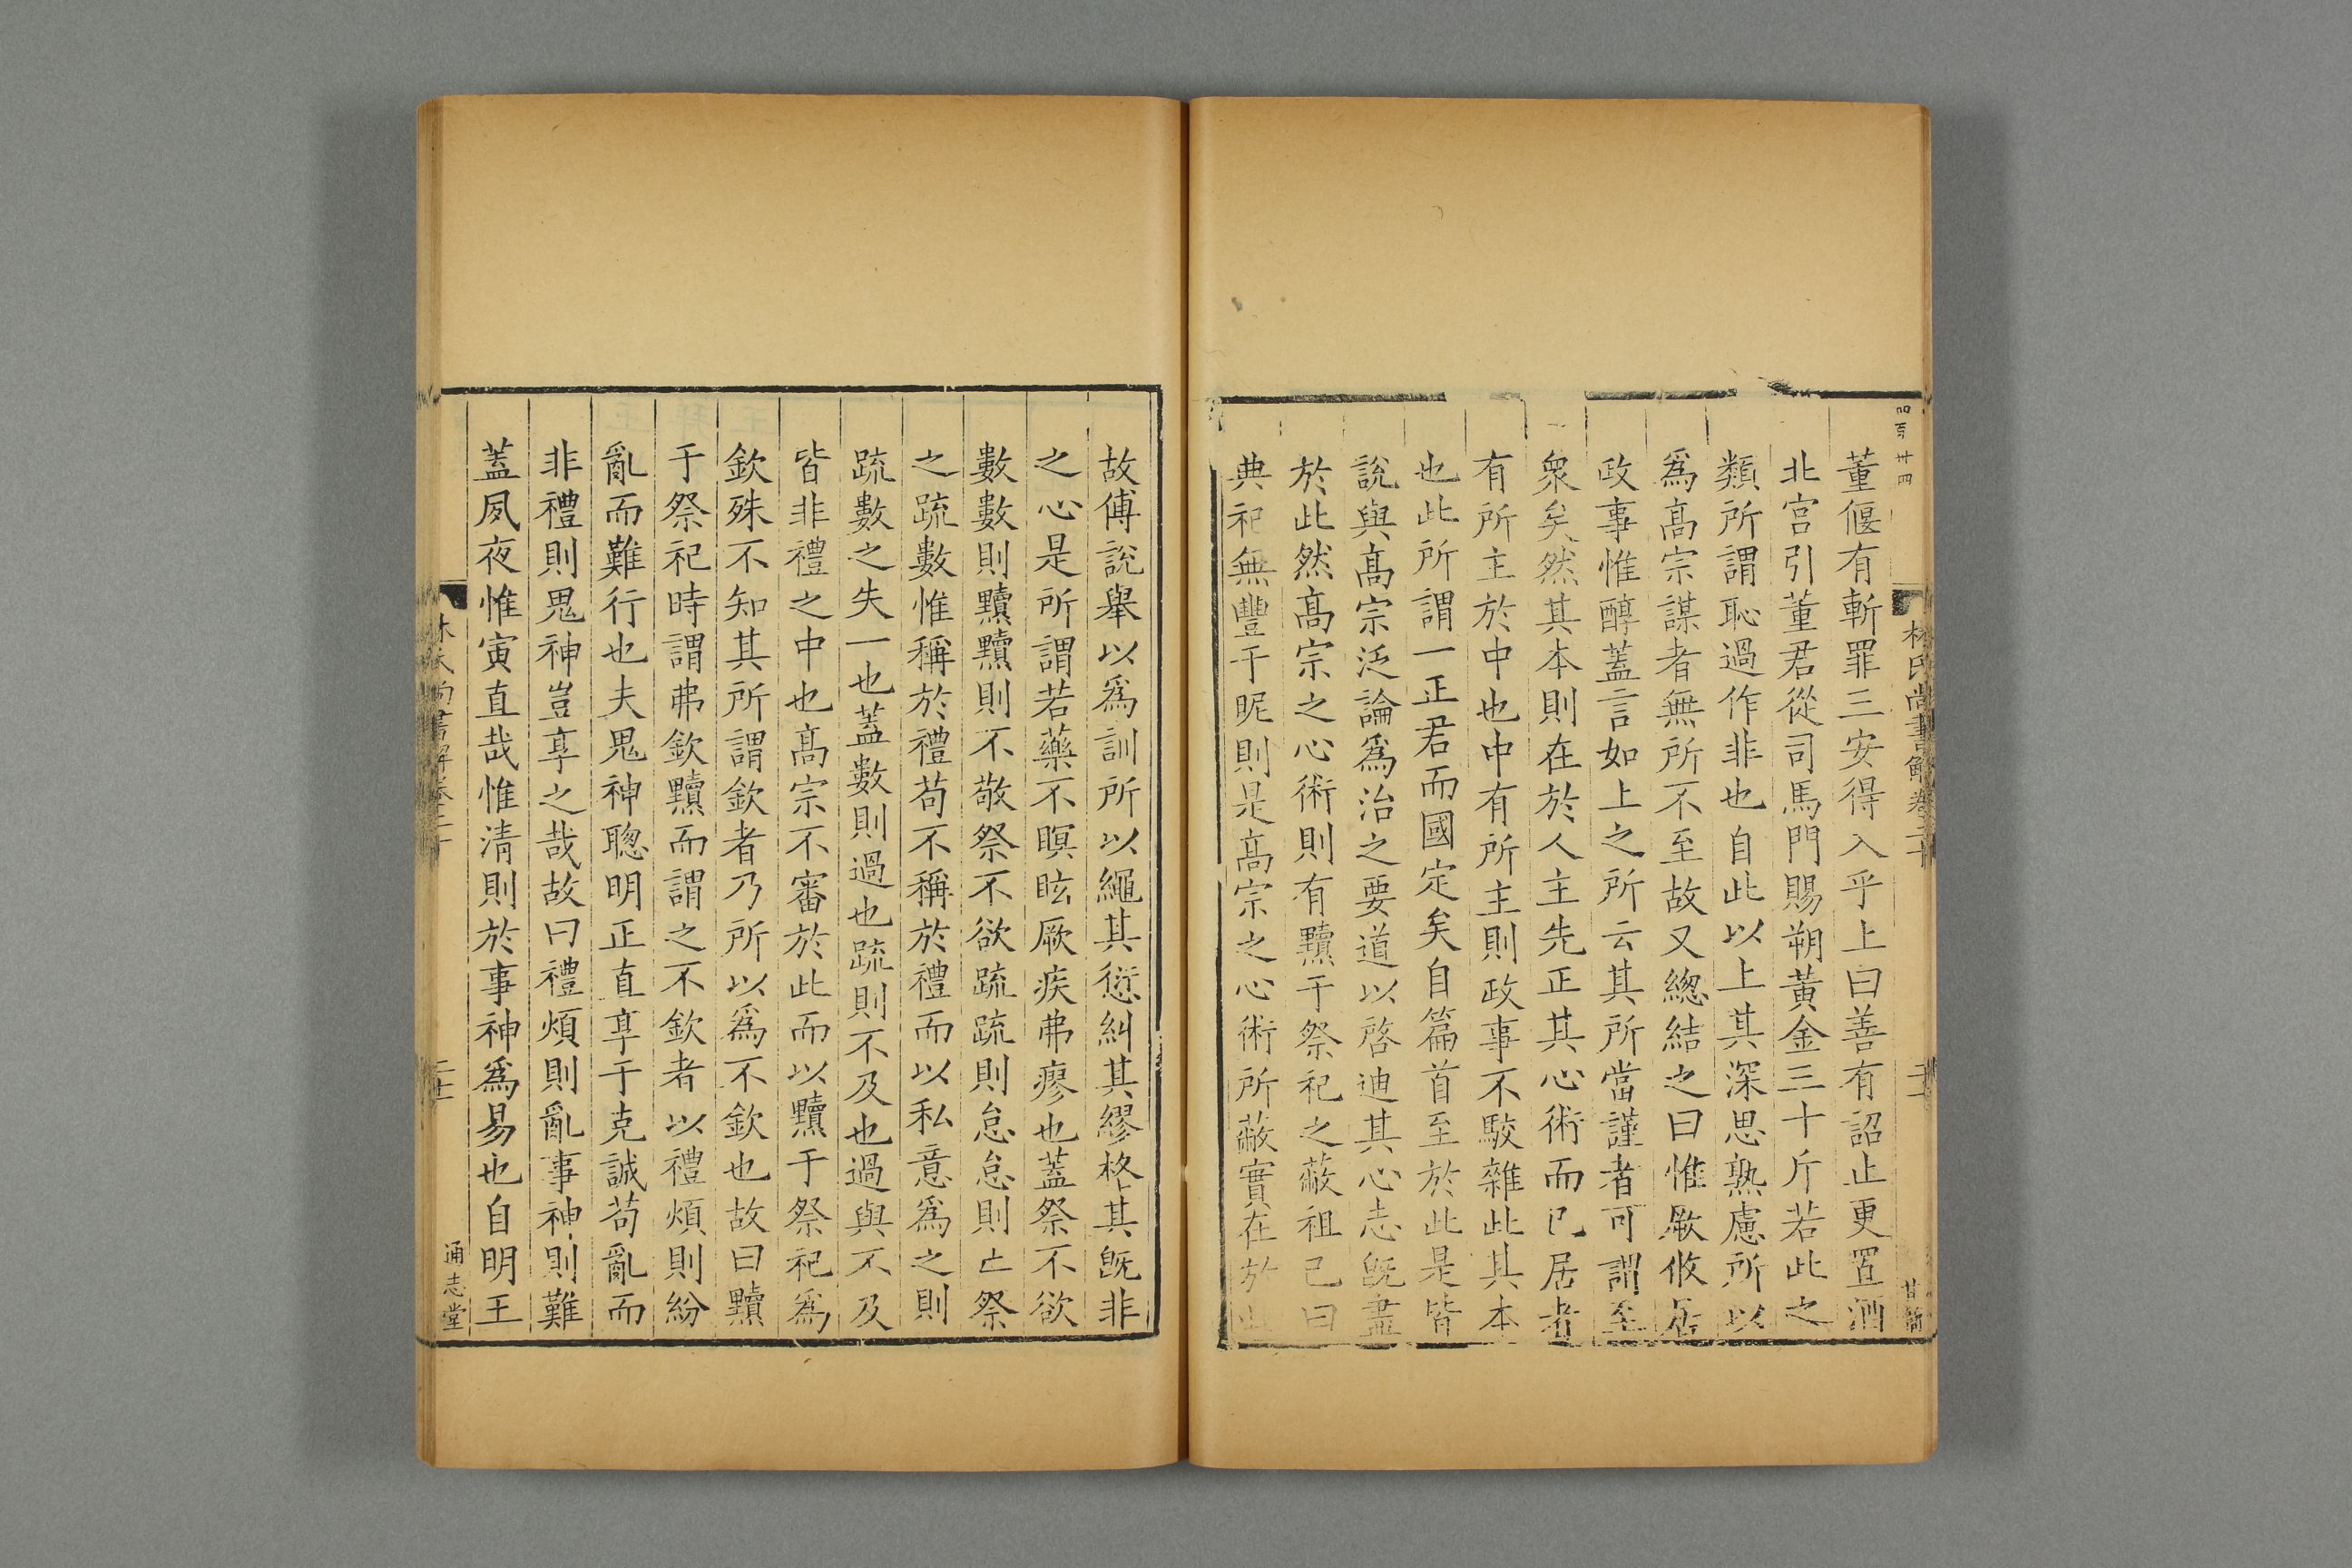 四百廿四
林氏尚書解卷二十
董偃有斬罪三安得入乎上曰善有詔止更置酒
北宫引董君從司馬門賜朔黃金三十斤若此之
類所謂恥過作非也自此以上其深思熟慮所以
爲髙宗謀者無所不至故又緫結之曰惟厥攸居
政事惟醇蓋言如上之所云其所當謹者可謂至
衆矣然其本則在於人主先正其心術而已居者
有所主於中也中有所主則政事不駁雜此其本
也此所謂一正君而國定矣自篇首至於此是皆
說與髙宗泛論爲治之要道以啓迪其心志旣盡
於此然髙宗之心術則有黷于祭祀之蔽祖己曰
典祀無豐于昵則是髙宗之心術所蔽實在於此
故傅說舉以爲訓所以繩其愆糾其繆格其旣非
之心是所謂若藥不瞑眩厥疾弗瘳也蓋祭不欲
數數則黷黷則不敬祭不欲疏疏則怠怠則亡祭
之疏數惟稱於禮苟不稱於禮而以私意爲之則
疏數之失一也蓋數則過也疏則不及也過與不及
皆非禮之中也髙宗不審於此而以黷于祭祀爲
欽殊不知其所謂欽者乃所以爲不欽也故曰黷
于祭祀時謂弗欽黷而謂之不欽者以禮煩則紛
亂而難行也夫鬼神聰明正直享于克誠苟亂而
非禮則鬼神豈享之哉故曰禮煩則亂事神則難
蓋夙夜惟寅直哉惟淸則於事神爲易也自明王
林氏尚書解卷二十
通志堂